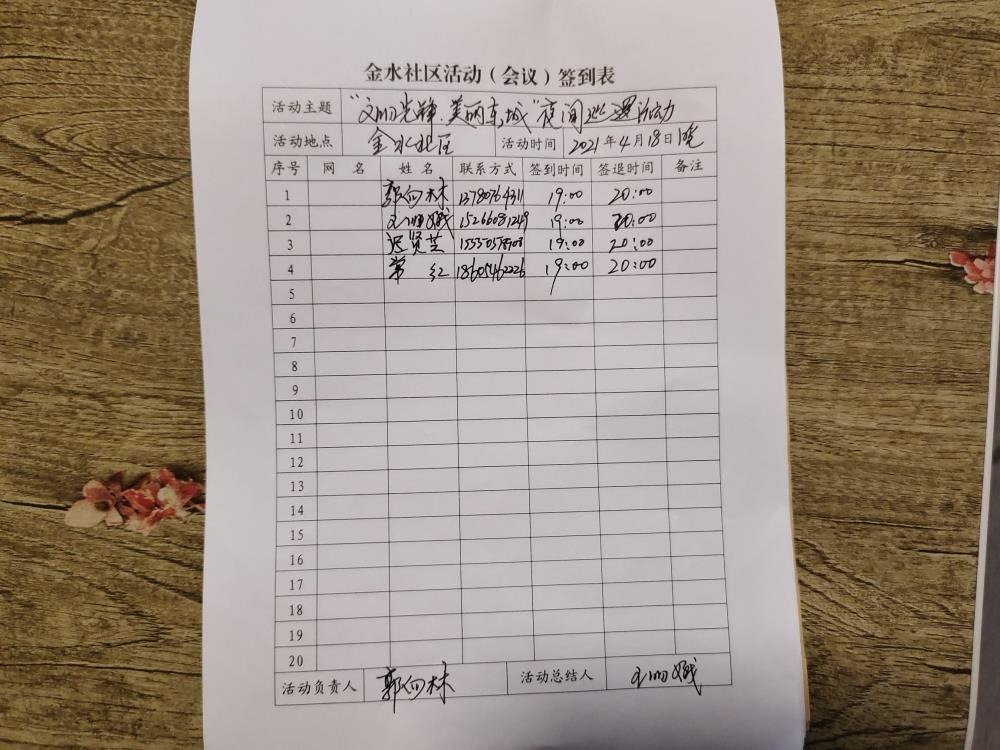 金水社区活动(会议)签到表
活动主题 夜间巡逻活动
活动地点 金水社区 活动时间 2021年4月18日晚
序号 网 名 姓 名 联系方式 签到时间 签退时间 备注
1 郭向林 13780764311 19:00 20:00
2 15266081249 19:00 20:00
3 迟贤芝 19:00 20:00
4 常 红 18605462226 19:00 20:00
5
6
7
8
9
10
11
12
13
14
15
16
17
18
19
20
活动负责人 郭向林 活动总结人